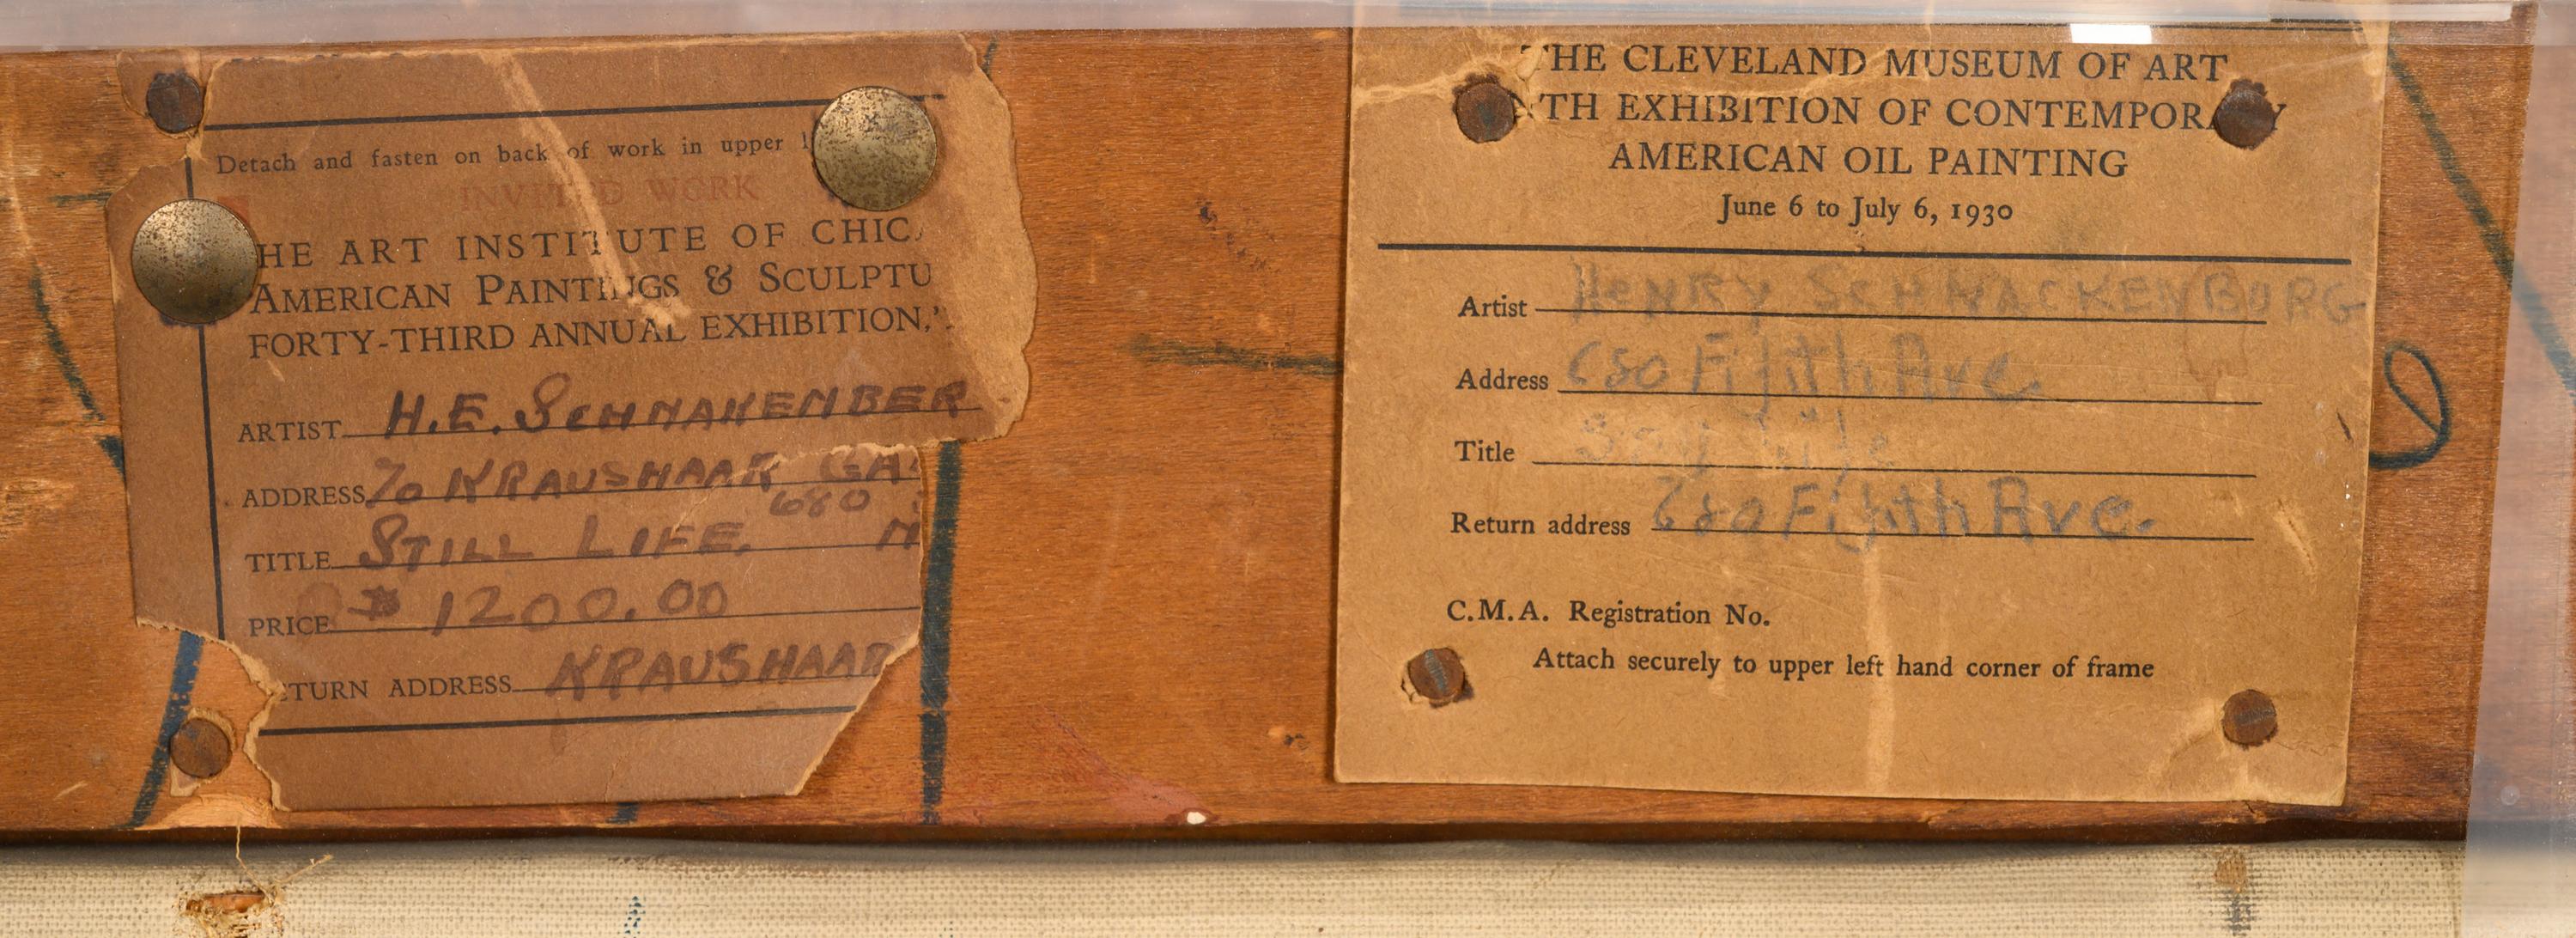 Detach and fasten on back of work in upper l
INVITED WORK
HE ART INSTITUTE OF CHIC
AMERICAN PAINTINGS & SCULPTU
FORTY-THIRD ANNUAL EXHIBITION,'
ARTIST H.E. SCHNAKENBER
ADDRESS % KRAUSHAAR GA
680
TITLE STILL LIFE. N
PRICE $ 1200.00
ETURN ADDRESS KRAUSHAAR
THE CLEVELAND MUSEUM OF ART
TH EXHIBITION OF CONTEMPORARY
AMERICAN OIL PAINTING
June 6 to July 6, 1930
Artist HENRY SCHNACKENBURG
Address 680 Fifth Ave.
Title
Return address 680 Fifth Ave.
C.M.A. Registration No.
Attach securely to upper left hand corner of frame